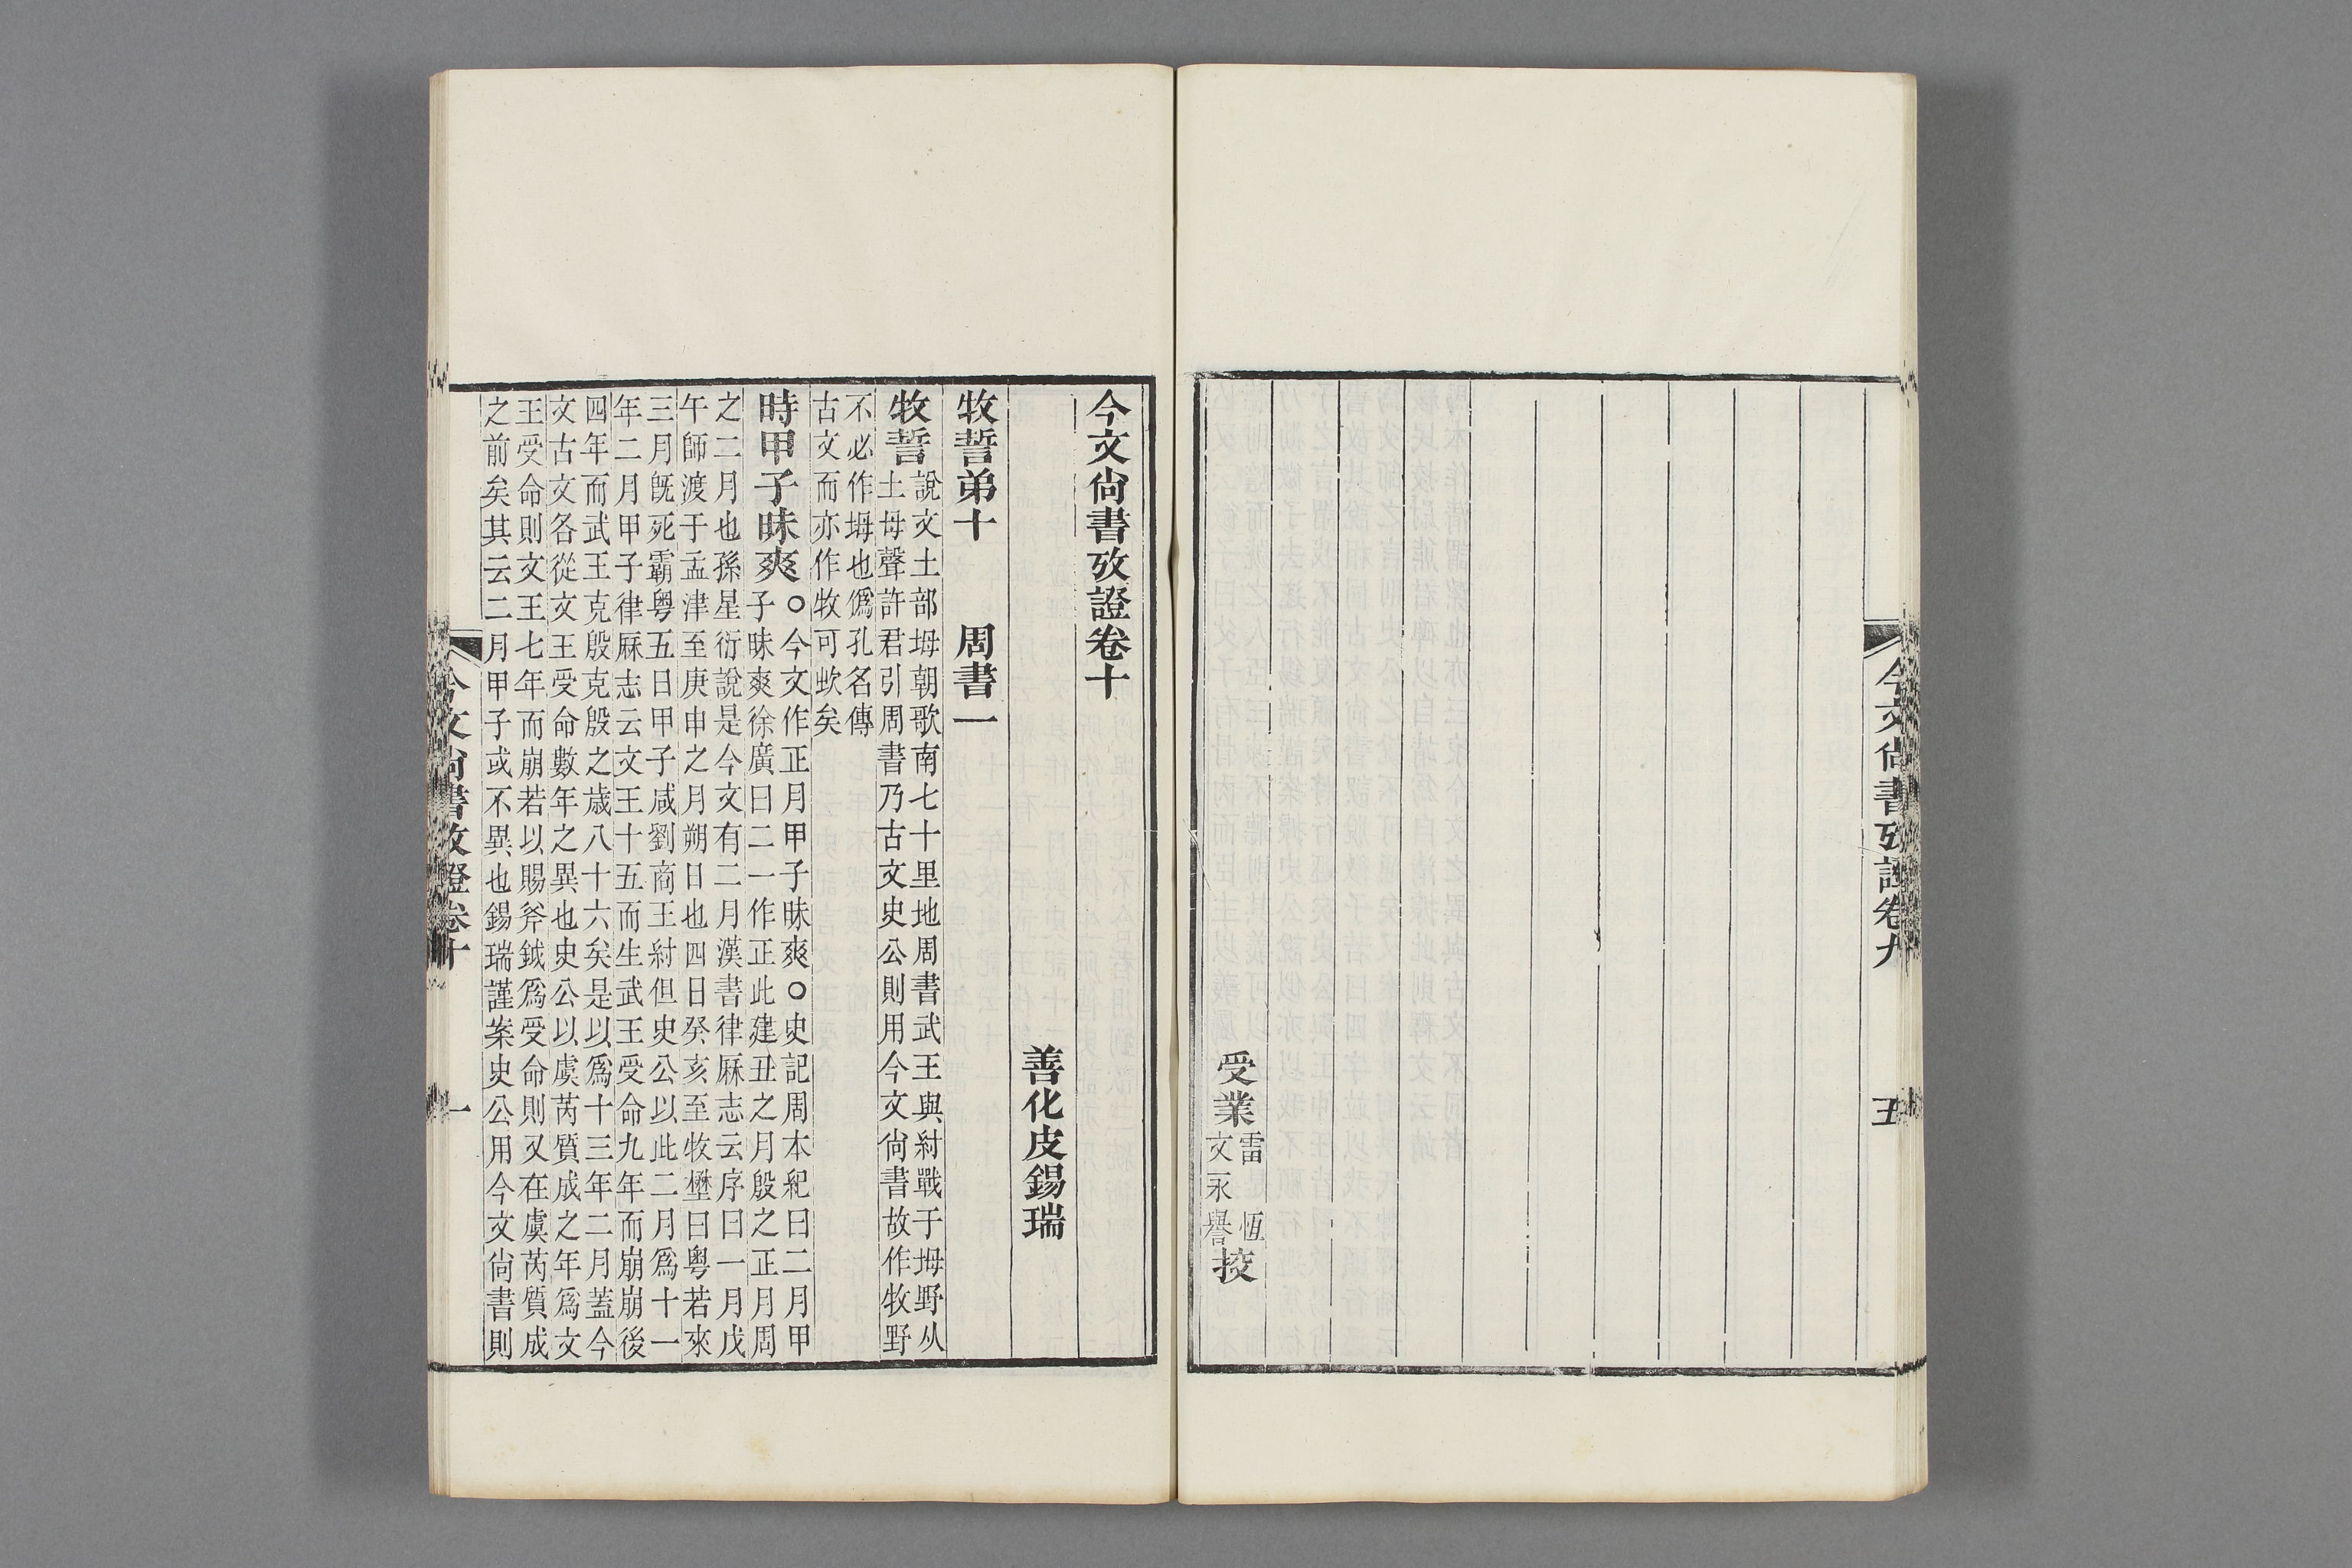 今文尙書攷證卷九
五
受業
雷 恆
文永譽
挍
今文尙書攷證卷十
善化皮錫瑞
牧誓弟十 周書一
牧誓
說文土部坶朝歌南七十里地周書武王與紂戰于坶野从
土母聲許君引周書乃古文史公則用今文尙書故作牧野
不必作坶也僞孔名傳
古文而亦作牧可蚍矣
時甲子昧爽
○今文作正月甲子昧爽○史記周本紀曰二月甲
子昧爽徐廣曰二一作正此建丑之月殷之正月周
之二月也孫星衍說是今文有二月漢書律厤志云序曰一月戊
午師渡于孟津至庚申之月朔日也四日癸亥至牧壄曰粵若來
三月旣死霸粵五日甲子咸劉商王紂但史公以此二月爲十一
年二月甲子律厤志云文王十五而生武王受命九年而崩崩後
四年而武王克殷克殷之歲八十六矣是以爲十三年二月蓋今
文古文各從文王受命數年之異也史公以虞芮質成之年爲文
王受命則文王七年而崩若以賜斧鉞爲受命則又在虞芮質成
之前矣其云二月甲子或不異也錫瑞謹案史公用今文尙書則
今文尙書攷證卷十
一